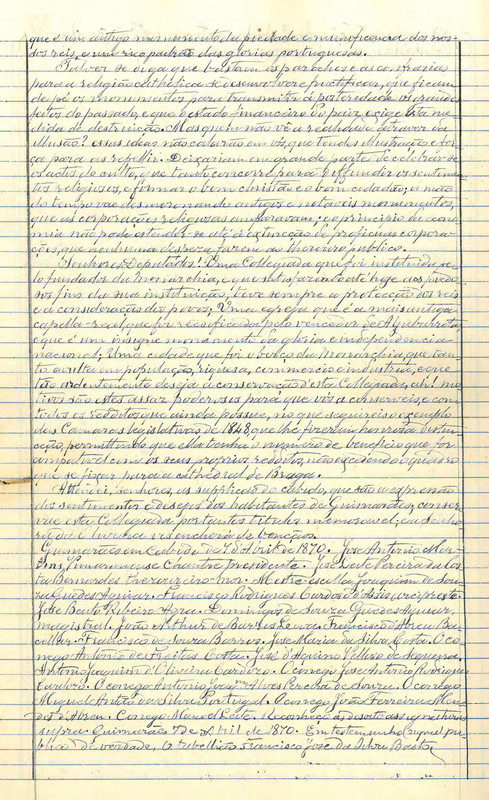 que é um antigo monumento da piedade e munificencia dos nos-
sos reis, e um rico padrão das glorias portuguesas.
Talvez se diga que bastam os parochos e as confrarias
para a religião catholica se desenvolver e fructificar, que ficam
de pé os monumentos para transmittir á posteridade os grandes
feitos do passado, e que o estado financeiro do paiz exige esta me-
dida de destruição. Mas quem não vê a realidade atravez da
illusão? essas ideas não calarão em vós, que tendes illustração e for-
ça para as repellir. Deixariam em grande parte de celebrar-se
os actos do culto, que tanto concorre para diffundir os sentimen-
tos religiosos, e formar o bom christão e o bom cidadão; a mão
do tempo vae desmoronando antigos e notaveis monumentos,
que as corporações religiosas amparavam; e o principio de econo-
mia não póde estender-se até a extincção de proficuas corpora-
ções, que nenhuma despeza fazem ao thesouro publico.
Senhores Deputados! Uma Collegiada que foi instituida pe-
lo fundador da Monarchia, e que satisfazendo até hoje aos piedo-
sos fins da sua instituição, teve sempre a protecção dos reis
e a consideração dos povos; Uma egreja que é a mais antiga
capella real, que foi reedificada pelo vencedor de Aljubarrota,
e que é um insigne monumento da gloria e independencia
nacional; Uma cidade que foi o berço da Monarchia, que tan-
to avulta em população, riqueza, commercio e industria, e que
tão ardentemente deseja a conservação d'esta Collegiada, ah! mo-
tivos são estes assaz poderosos para que vós a conserveis, e com
todos os redditos que ainda possue, no que seguireis o exemplo
das Camaras legislativas de 1848, que lhe fizeram honrosa distin-
cção, permittindo que ella tenha o numero de beneficios que for
compativel com os seus proprios redditos, não excedendo o quadro
que se fixar para a cathedral de Braga.
Attendei, senhores, as supplicas do cabido, que são a expressão
dos sentimentos e desejos dos habitantes de Guimarães; conser-
vae esta Collegiada por tantos titulos memoravel; e a Senho-
ra da Oliveira vos encherá de bençãos.
Guimarães em Cabido de 7 d'Abril de 1870. José Antonio Mar-
Vimaranense Chantre presidente. José Leite Pereira da Cos-
ta Bernardes thesoureiro-mor. Mestre escolla Joaquim de Sou-
za Guedes Aguiar. Francisco Rodrigues Cardozo d'Assis arcipreste.
José Bento Ribeiro Agra. Domingos de Souza Guedes Aguiar,
magistral. João Arthur de Barros Lima. Francisco d'Abreu Ba-
cellar. Francisco de Souza Barros. José Maria da Silva Costa. O co-
nego Antonio de Freitas Costa. José d'Aquino Velloso de Sequeira.
Antonio Joaquim d'Oliveira Cardozo. O conego José Antonio Rodrigues
Cardozo. O conego Antonio José Alves Pereira de Souza. O conego
Miguel Antonio da Silva Portugal. O conego João Ferreira Men-
des d'Abreu. Conego Manoel Leite. Reconheço as dezoito assignaturas
supra. Guimarães 7 de Abril de 1870. Em testemunho signal pu-
blico de verdade, O tabellião Francisco José da Silva Basto